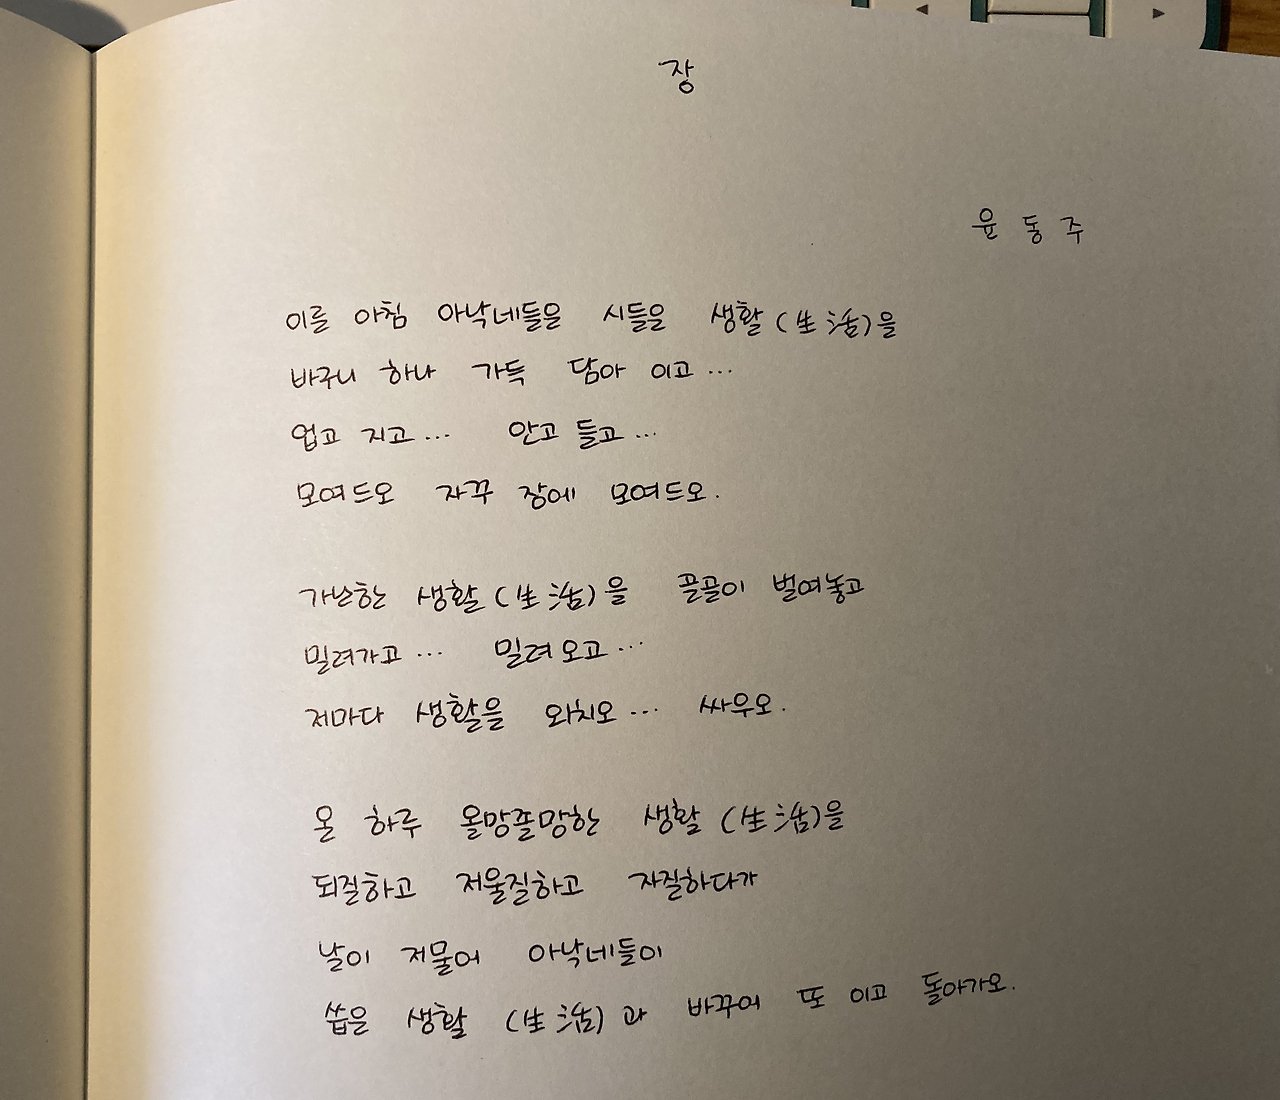 장
윤동주
이를 아침 아낙네들은 시들은 생활(生活)을
바구니 하나 가득 담아 이고…
업고 지고… 안고 들고…
모여드오 자꾸 장에 모여드오.
가난한 생활(生活)을 골골이 벌여놓고
밀려가고… 밀려오고…
저마다 생활을 외치오… 싸우오.
온 하루 올망졸망한 생활(生活)을
되질하고 저울질하고 자질하다가
날이 저물어 아낙네들이
씁은 생활(生活)과 바꾸어 또 이고 돌아가오.